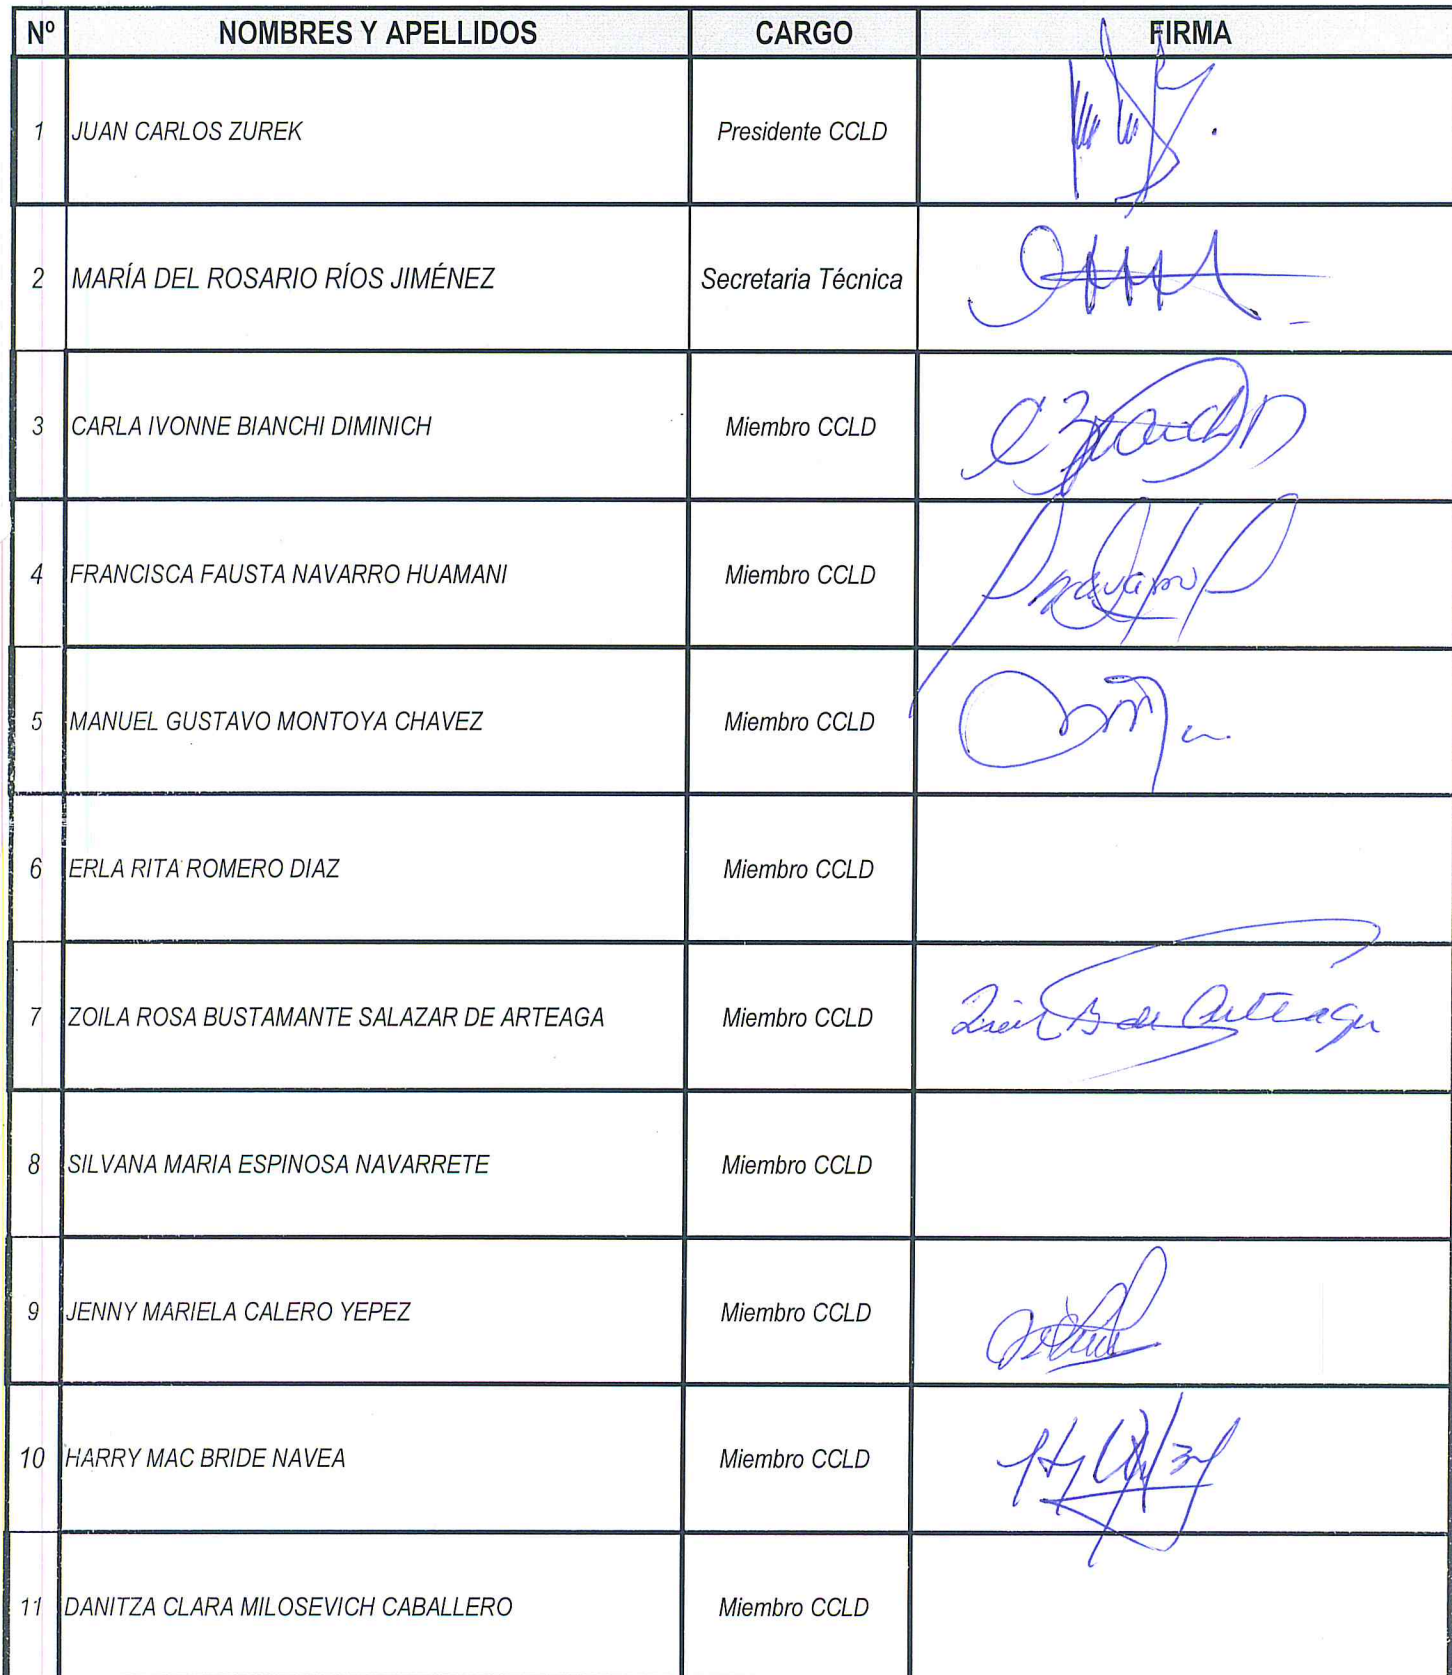 Nº NOMBRES Y APELLIDOS CARGO FIRMA
1 JUAN CARLOS ZUREK Presidente CCLD
2 MARÍA DEL ROSARIO RÍOS JIMÉNEZ Secretaria Técnica
3 CARLA IVONNE BIANCHI DIMINICH Miembro CCLD
4 FRANCISCA FAUSTA NAVARRO HUAMANI Miembro CCLD
5 MANUEL GUSTAVO MONTOYA CHAVEZ Miembro CCLD
6 ERLA RITA ROMERO DIAZ Miembro CCLD
7 ZOILA ROSA BUSTAMANTE SALAZAR DE ARTEAGA Miembro CCLD
8 SILVANA MARIA ESPINOSA NAVARRETE Miembro CCLD
9 JENNY MARIELA CALERO YEPEZ Miembro CCLD
10 HARRY MAC BRIDE NAVEA Miembro CCLD
11 DANITZA CLARA MILOSEVICH CABALLERO Miembro CCLD